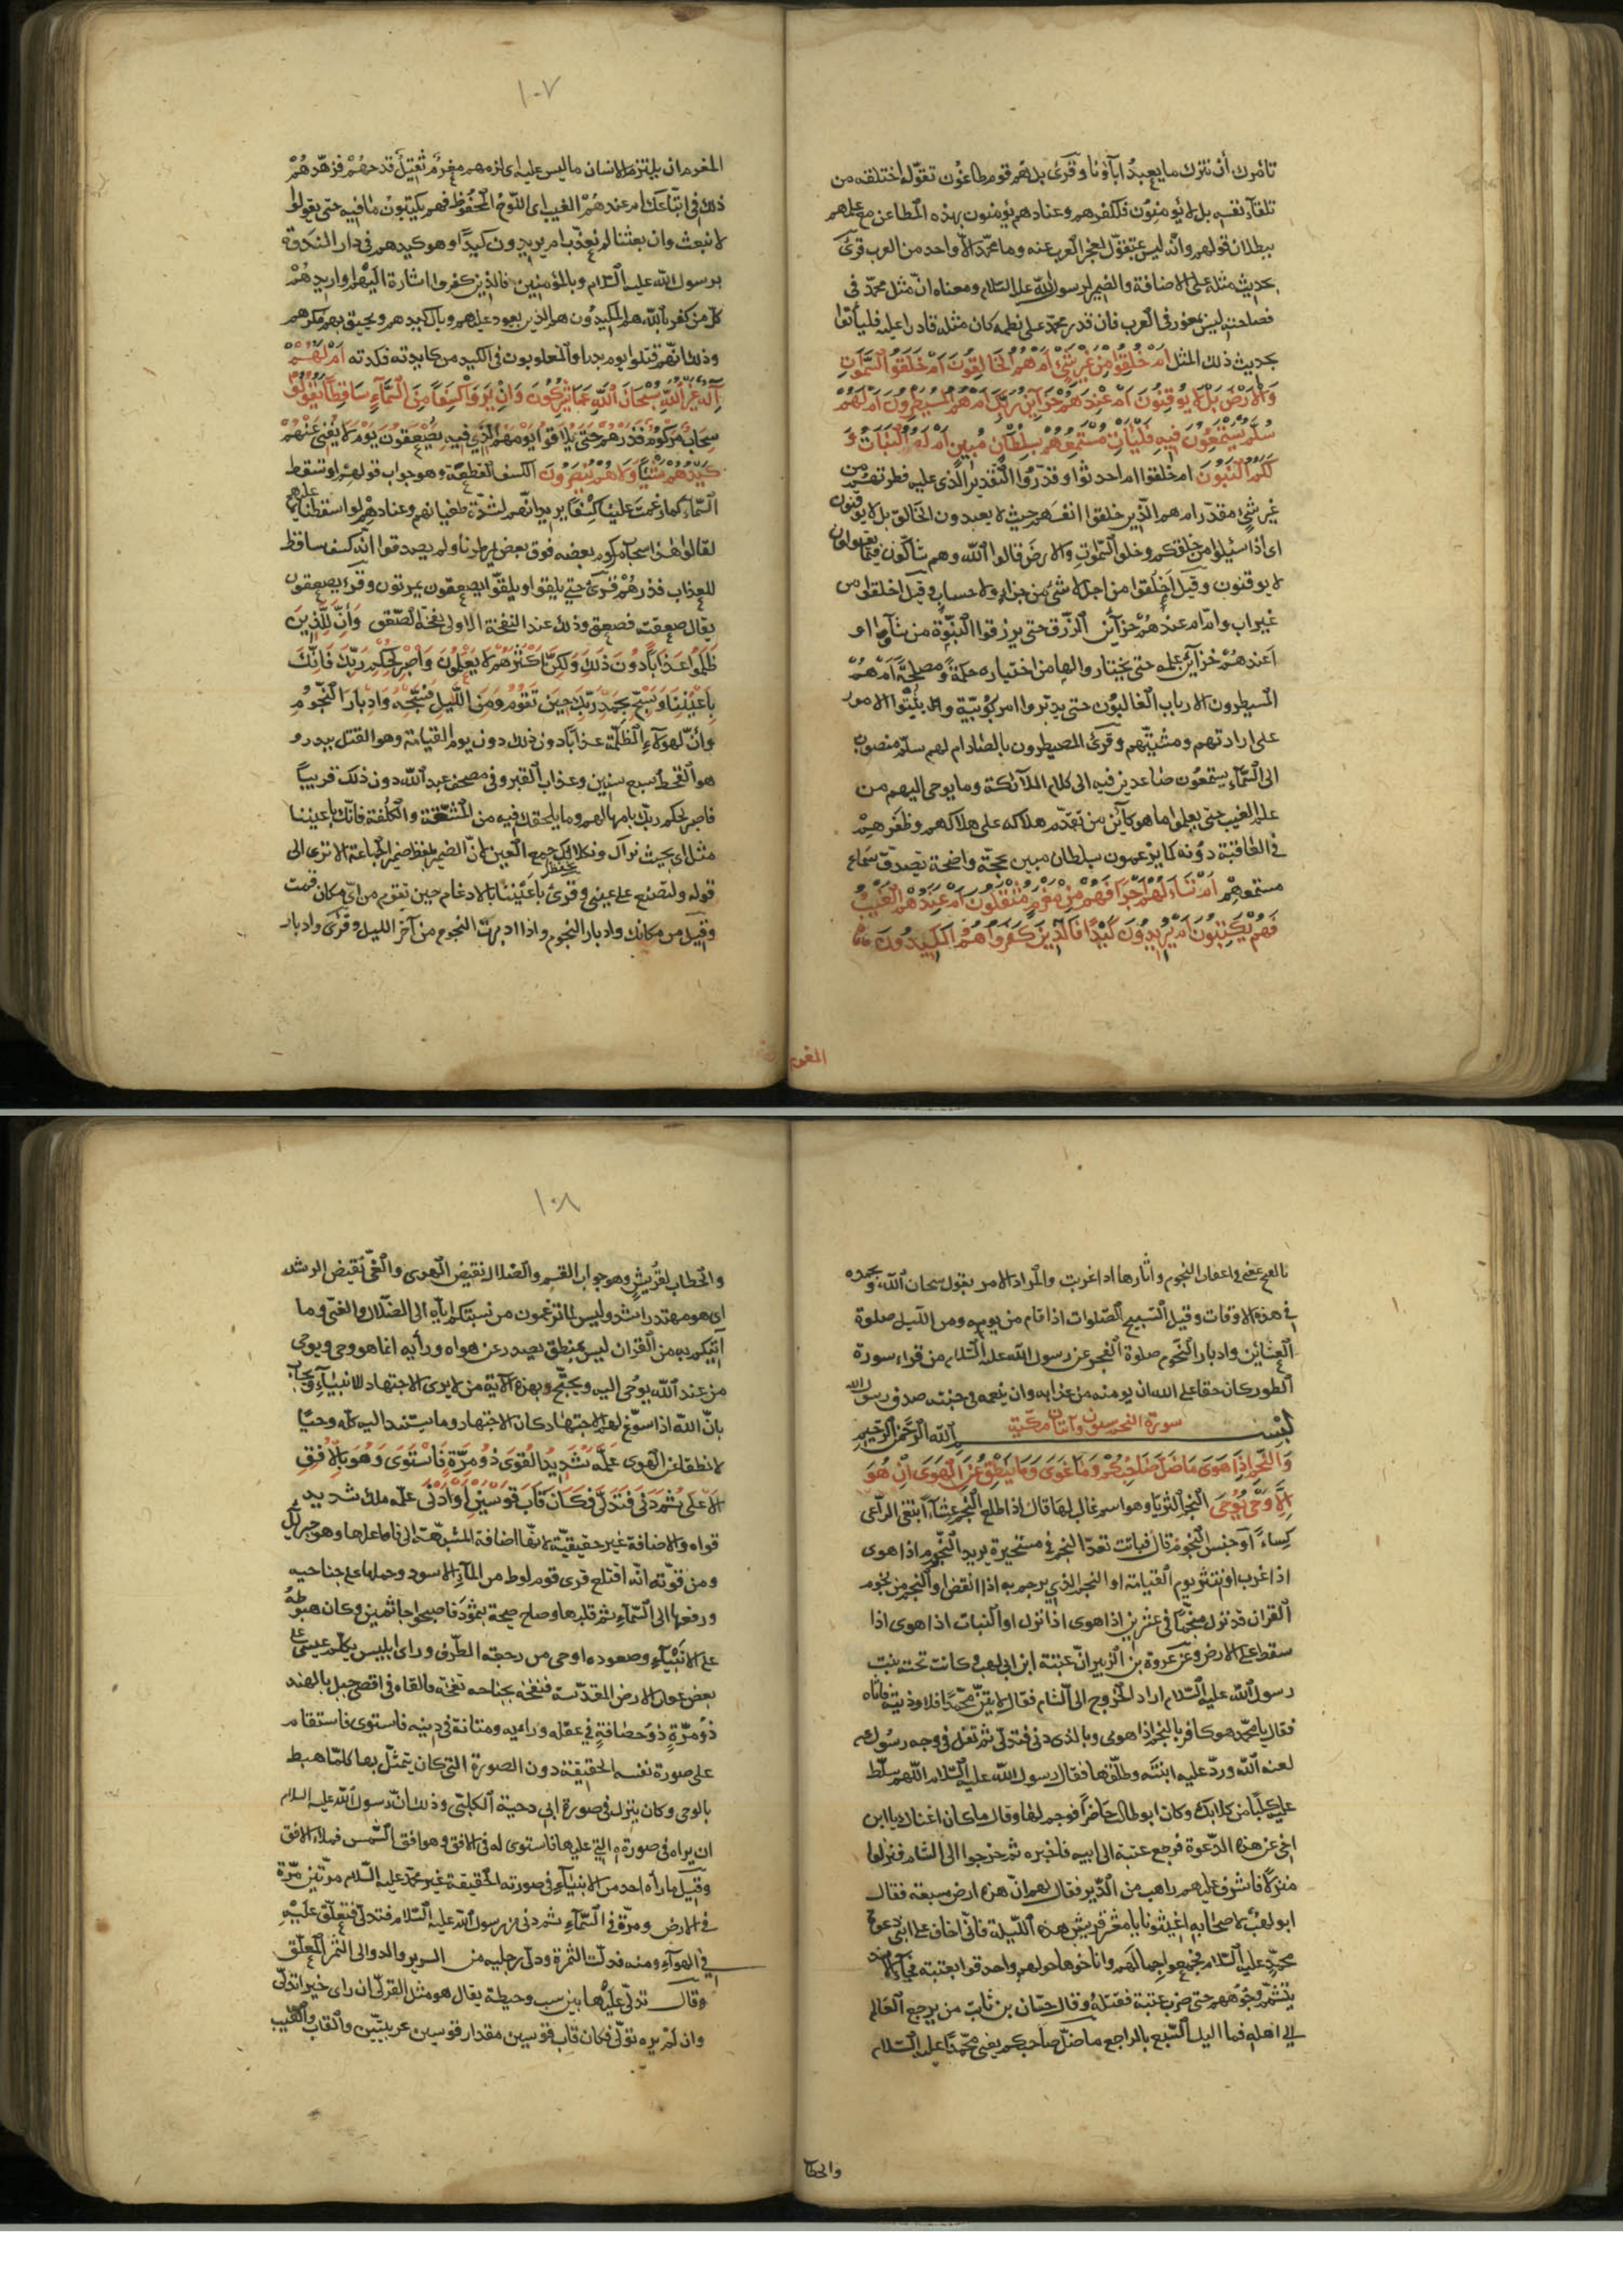 تأمرك أن نترك ما يعبد اباؤنا وقرئ بل هم قوم طاغون تقوّله اختلقه من
تلقآء نفسه بل لا يؤمنون فلكفرهم وعنادهم يؤمنون بهذه المطاعن مع علمهم
ببطلان قولهم وانّه ليس بمتقوّل لعجز العرب عنه وما محمّد الاّ واحد من العرب قرئ
بحديث مثله على الاضافة والضمير لرسول الله عليه السّلام ومعناه انّ مثل محمّد في
فصاحته ليس بمعوز في العرب فان قدر محمّد على نظمه كان مثله قادرا عليه فليأتوا
بحديث ذلك المثل أَمْ خُلِقُوا مِنْ غَيْرِ شَيْءٍ أَمْ هُمُ الْخَالِقُونَ أَمْ خَلَقُوا السَّمٰوَاتِ
وَالْأَرْضَ بَلْ لَا يُوقِنُونَ أَمْ عِنْدَهُمْ خَزَآئِنُ رَبِّكَ أَمْ هُمُ الْمُسَيْطِرُونَ أَمْ لَهُمْ
سُلَّمٌ يَسْتَمِعُونَ فِيهِ فَلْيَأْتِ مُسْتَمِعُهُمْ بِسُلْطَانٍ مُبِينٍ أَمْ لَهُ الْبَنَاتُ وَ
لَكُمُ الْبَنُونَ ام خلقوا ام احدثوا وقدّروا التّقدير الّذي عليه فطرتهم من
غير شيء مقدّر ام هم الّذين خلقوا انفسهم حيث لا يعبدون الخالق بل لا يوقنون
اي اذا سئلوا من خلقكم وخلق السّموات والارض قالوا الله وهم شاكّون فيما يقولون
لا يوقنون وقيل أخلقوا من اجل لا شيء من جزاء ولا حساب وقيل اخلقوا من
غير اب وامّ ام عندهم خزآئن الرّزق حتى يرزقوا النّبوّة من شآؤا او
أعندهم خزآئن علمه حتى يختاروا لها من اختياره حكمة ومصلحة أم هم
المسيطرون الارباب الغالبون حتى يدبّروا امر الرّبوبيّة ويبنوا الامور
على ارادتهم ومشيّتهم وقرئ المصيطرون بالصّاد ام لهم سلّم منصوب
الى السّمآء يستمعون صاعدين فيه الى كلام الملآئكة وما يوحى اليهم من
علم الغيب حتى يعلموا ما هو كآئن من تقدّم هلاكه على هلاكهم وظفرهم
في العاقبة دونه كما يزعمون بسلطان مبين بحجّة واضحة تصدّق سماع
مستمعهم أَمْ تَسْأَلُهُمْ أَجْرًا فَهُمْ مِنْ مَغْرَمٍ مُثْقَلُونَ أَمْ عِنْدَهُمُ الْغَيْبُ
فَهُمْ يَكْتُبُونَ أَمْ يُرِيدُونَ كَيْدًا فَالَّذِينَ كَفَرُوا هُمُ الْمَكِيدُونَ
المغرم
١٠٧
المغرم ان يلتزم الانسان ما ليس عليه اي لزمهم مغرم ثقيل قدحهم فزهّدهم
ذلك في اتّباعك ام عندهم الغيب اي اللّوح المحفوظ فهم يكتبون ما فيه حتى يقولوا
لا نبعث وان بعثنا لم نعذّب ام يريدون كيدًا وهو كيدهم في دار النّدوة
برسول الله عليه السّلام وبالمؤمنين فالّذين كفروا اشارة اليهم او اريد بهم
كلّ من كفر بالله هم المكيدون هم الذين يعود عليهم وبال كيدهم ويحيق بهم مكرهم
وذلك انّهم قتلوا يوم بدر او المغلوبون في الكيد من كايدته فكدته أَمْ لَهُمْ
إِلٰهٌ غَيْرُ اللّٰهِ سُبْحَانَ اللّٰهِ عَمَّا يُشْرِكُونَ وَإِنْ يَرَوْا كِسْفًا مِنَ السَّمَآءِ سَاقِطًا يَقُولُوا
سَحَابٌ مَرْكُومٌ فَذَرْهُمْ حَتَّى يُلَاقُوا يَوْمَهُمُ الَّذِي فِيهِ يُصْعَقُونَ يَوْمَ لَا يُغْنِي عَنْهُمْ
كَيْدُهُمْ شَيْئًا وَلَا هُمْ يُنْصَرُونَ الكسف القطعة وهو جواب قولهم او تسقط
السّمآء كما زعمت علينا كسفًا يريد انّهم لشدّة طغيانهم وعنادهم لو اسقطناها عليهم
لقالوا هذا سحاب مركوم بعضه فوق بعض يمطرنا ولم يصدقوا انّه كسف ساقط
للعذاب فذرهم قرئ حتى يلقوا ويلقّوا يصعقون يموتون وقرئ يصعقون
يقال صعقته فصعق وذلك عند النفخة الاولى نفخة الصّعق وَإِنَّ لِلَّذِينَ
ظَلَمُوا عَذَابًا دُونَ ذَلِكَ وَلَكِنَّ أَكْثَرَهُمْ لَا يَعْلَمُونَ وَاصْبِرْ لِحُكْمِ رَبِّكَ فَإِنَّكَ
بِأَعْيُنِنَا وَسَبِّحْ بِحَمْدِ رَبِّكَ حِينَ تَقُومُ وَمِنَ اللَّيْلِ فَسَبِّحْهُ وَإِدْبَارَ النُّجُومِ
وانّ لهؤلآء الظّلمة عذابًا دون ذلك دون يوم القيامة وهو القتل ببدر و
هو القحط سبع سنين وعذاب القبر وفي مصحف عبد الله دون ذلك قريبًا
فاصبر لحكم ربّك بامهالهم وما يلحقك فيه من المشقّة والكلفة فانّك باعيننا
مثل اي بحيث نراك ونكلاؤك جمع العين لانّ الضمير بلفظ ضمير الجماعة الا ترى الى
قوله ولتصنع على عيني وقرئ بأعينّا بالادغام حين تقوم من اي مكان قمت
وقيل من مكانك وادبار النجوم واذا ادبرت النجوم من آخر الليل وقرئ وادبار
بالفتح بمعنى في اعقاب النجوم وآثارها اذا غربت والمراد الامر بقول سبحان الله وبحمده
في هذه الاوقات وقيل التّسبيح الصّلوات اذا قام من يومه ومن اللّيل صلوة
العشائين وادبار النّجوم صلوة الفجر عن رسول الله عليه السّلام من قراء سورة
الطور كان حقا على الله ان يومنه من عذابه وان ينعمه في جنته صدق رسول الله
سورة النجم ستون وآيتان مكية
بسم الله الرّحمن الرّحيم
وَالنَّجْمِ إِذَا هَوَى مَا ضَلَّ صَاحِبُكُمْ وَمَا غَوَى وَمَا يَنْطِقُ عَنِ الْهَوَى إِنْ هُوَ
إِلَّا وَحْيٌ يُوحَى النّجم الثريّا وهو اسم غالب لها قال اذا طلع النّجم عشاءً ابتغى الرّاعي
كساءً او جنس النّجوم قال فباتت تعدّ النجم في مستحيرة يريد النّجوم اذا هوى
اذا غرب او انتثر يوم القيامة او النجم الذي يرجم به اذا انقضّ او النّجم من نجوم
القران قد نزل منجّمًا في عشرين اذا هوى اذا نزل او النبات اذا هوى اذا
سقط على الارض وعن عروة بن الزبير انّ عتبة ابن ابي لهب وكانت تحته بنت
رسول الله عليه السّلام اراد الخروج الى الشام فقال لاتينّ محمّدا فلاوذينّه فاتاه
فقال يا محمّد هو كافر بالنّجم اذا هوى وبالذي دنى فتدلّى ثم تفل في وجه رسول
لعنه الله وردّ عليه ابنته وطلّقها فقال رسول الله عليه السّلام اللهم سلّط
عليه كلبا من كلابك وكان ابوطالب حاضرًا فوجم لها وقال ما كان اغناك يا ابن
اخي عن هذه الدّعوة فرجع عتبة الى ابيه فاخبره ثم خرجوا الى الشام فنزلوا
منزلًا فاشرف عليهم راهب من الدّير فقال لهم انّ هذه ارض مسبعة فقال
ابو لهب لاصحابه اغيثونا يا معشر قريش هذه اللّيلة فانّي اخاف على ابني دعوة
محمّد عليه السّلام فجمعوا جمالهم واناخوها حولهم واحدقوا بعتبة فجآء الاسد
يتشمّم وجوههم حتى ضرب عتبة فقتله وقال حسّان بن ثابت من يرجع العام
الى اهله فما اكيل السّبع بالراجع ما ضلّ صاحبكم يعني محمّدًا عليه السّلام
والخطا
١٠٨
والخطاب لقريش وهو جواب القسم والضّلال نقيض الهدى والغيّ نقيض الرشد
اي هو مهتد راشد وليس كما تزعمون من نسبتكم ايّاه الى الضّلال والغيّ وما
آتيكم به من القرآن ليس بمنطق يصدر عن هواه ورأيه انما هو وحي ويوحى
من عند الله يوحى اليه ويحتجّ بهذه الآية من لا يرى الاجتهاد للانبيآء ويجاب
بانّ الله اذا سوّغ لهم الاجتهاد كان الاجتهاد وما يستند اليه كلّه وحيًا
لا نطقا عن الهوى عَلَّمَهُ شَدِيدُ الْقُوَى ذُو مِرَّةٍ فَاسْتَوَى وَهُوَ بِالْأُفُقِ
الْأَعْلَى ثُمَّ دَنَى فَتَدَلَّى فَكَانَ قَابَ قَوْسَيْنِ أَوْ أَدْنَى علّمه ملك شديد
قواه والاضافة غير حقيقيّة لانّها اضافة المشبّهة الى فاعلها وهو جبرئيل
ومن قوّته انّه اقتلع قرى قوم لوط من المآء الاسود وحملها على جناحيه
ورفعها الى السّمآء ثم قلبها وصاح صيحة بثمود فاصبحوا جاثمين وكان هبوطه
على الانبيآء وصعوده اوحى من رجعة الطّرف وراى ابليس يكلّم عيسى
بعض عقاب الارض المقدّسة فنفخه بجناحه نفخة والقاه في اقصى جبل بالهند
ذو مرّة ذو حصافة في عقله ورايه ومتانة في دينه فاستوى فاستقام
على صورة نفسه الحقيقية دون الصورة التي كان يتمثّل بها كلّما هبط
بالوحي وكان ينزل في صورة ابي دحية الكلبيّ وذلك انّ رسول الله عليه السلام
ان يراه في صورته التي عليها فاستوى له في الافق وهو افق الشّمس فملأ الافق
وقيل ما رآه احد من الانبيآء في صورته الحقيقة غير محمّد عليه السّلام مرّتين مرّة
في الارض ومرّة في السّمآء ثم دنى من رسول الله عليه السّلام فتدلّى فتعلّق عليه
في الهوآء ومنه تدلّت الثمرة ودلّى رجليه من السرير والدوالي الثمر المعلّق
وقال تدلّى عليها بين سبّ وخيطة يقال هو مثل القرلّى ان راى خيرا تدلّى
وان لم يره تولّى فكان قاب قوسين مقدار قوسين عربيتين والقاب والقيب